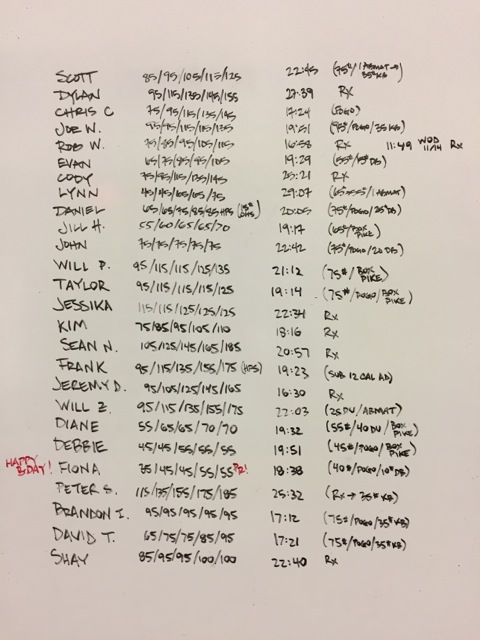 SCOTT 85/95/105/115/125 22:45 (75#/1 ABMAT → 35# KB)
DYLAN 95/115/135/145/155 27:39 RX
CHRIS C 75/95/115/135/145 17:24 (POGO)
JOE W. 95/95/115/115/135 19:51 (95#/POGO/35 KB)
ROB W. 75/85/95/105/115 16:58 RX 11:49 WOD 11/14 RX
EVAN 65/75/85/95/105 19:29 (55#/15# DB)
CODY 75/95/115/135/145 25:21 RX
LYNN 45/45/65/65/75 29:07 (/1 ABMAT)
DANIEL 65/65/75/85/85 HPS (15# OHS) 20:05 (75#/POGO/25# DB)
JILL H. 55/60/65/65/70 19:17 (65#/BOX PIKE)
JOHN 75/75/75/75/75 22:42 (75#/POGO/20 DB)
WILL P. 95/115/115/125/135 21:12 (75#/BOX PIKE)
TAYLOR 95/115/115/115/125 19:14 (75#/POGO/BOX PIKE)
JESSIKA 115/115/125/125/125 22:34 RX
KIM 75/85/95/105/110 18:16 RX
SEAN N. 105/125/145/165/185 20:57 RX
FRANK 95/115/135/155/175 (HPS) 19:23 (SUB 12 CAL AD)
JEREMY D. 95/105/125/145/165 16:30 RX
WILL Z. 95/115/135/155/175 22:03 (25 DU/ABMAT)
DIANE 55/65/65/70/70 19:32 (55#/40 DU/BOX PIKE)
DEBBIE 45/45/55/55/55 19:51 (45#/POGO/BOX PIKE)
HAPPY BDAY! FIONA 35/45/45/55/55 PR! 18:38 (40#/POGO/10# DB)
PETER S. 115/135/155/175/185 25:32 (RX → 35# KB)
BRANDON I. 95/95/95/95/95 17:12 (75#/POGO/35# KB)
DAVID T. 65/75/75/85/95 17:21 (75#/POGO/35# KB)
SHAY 85/95/95/100/100 22:40 RX